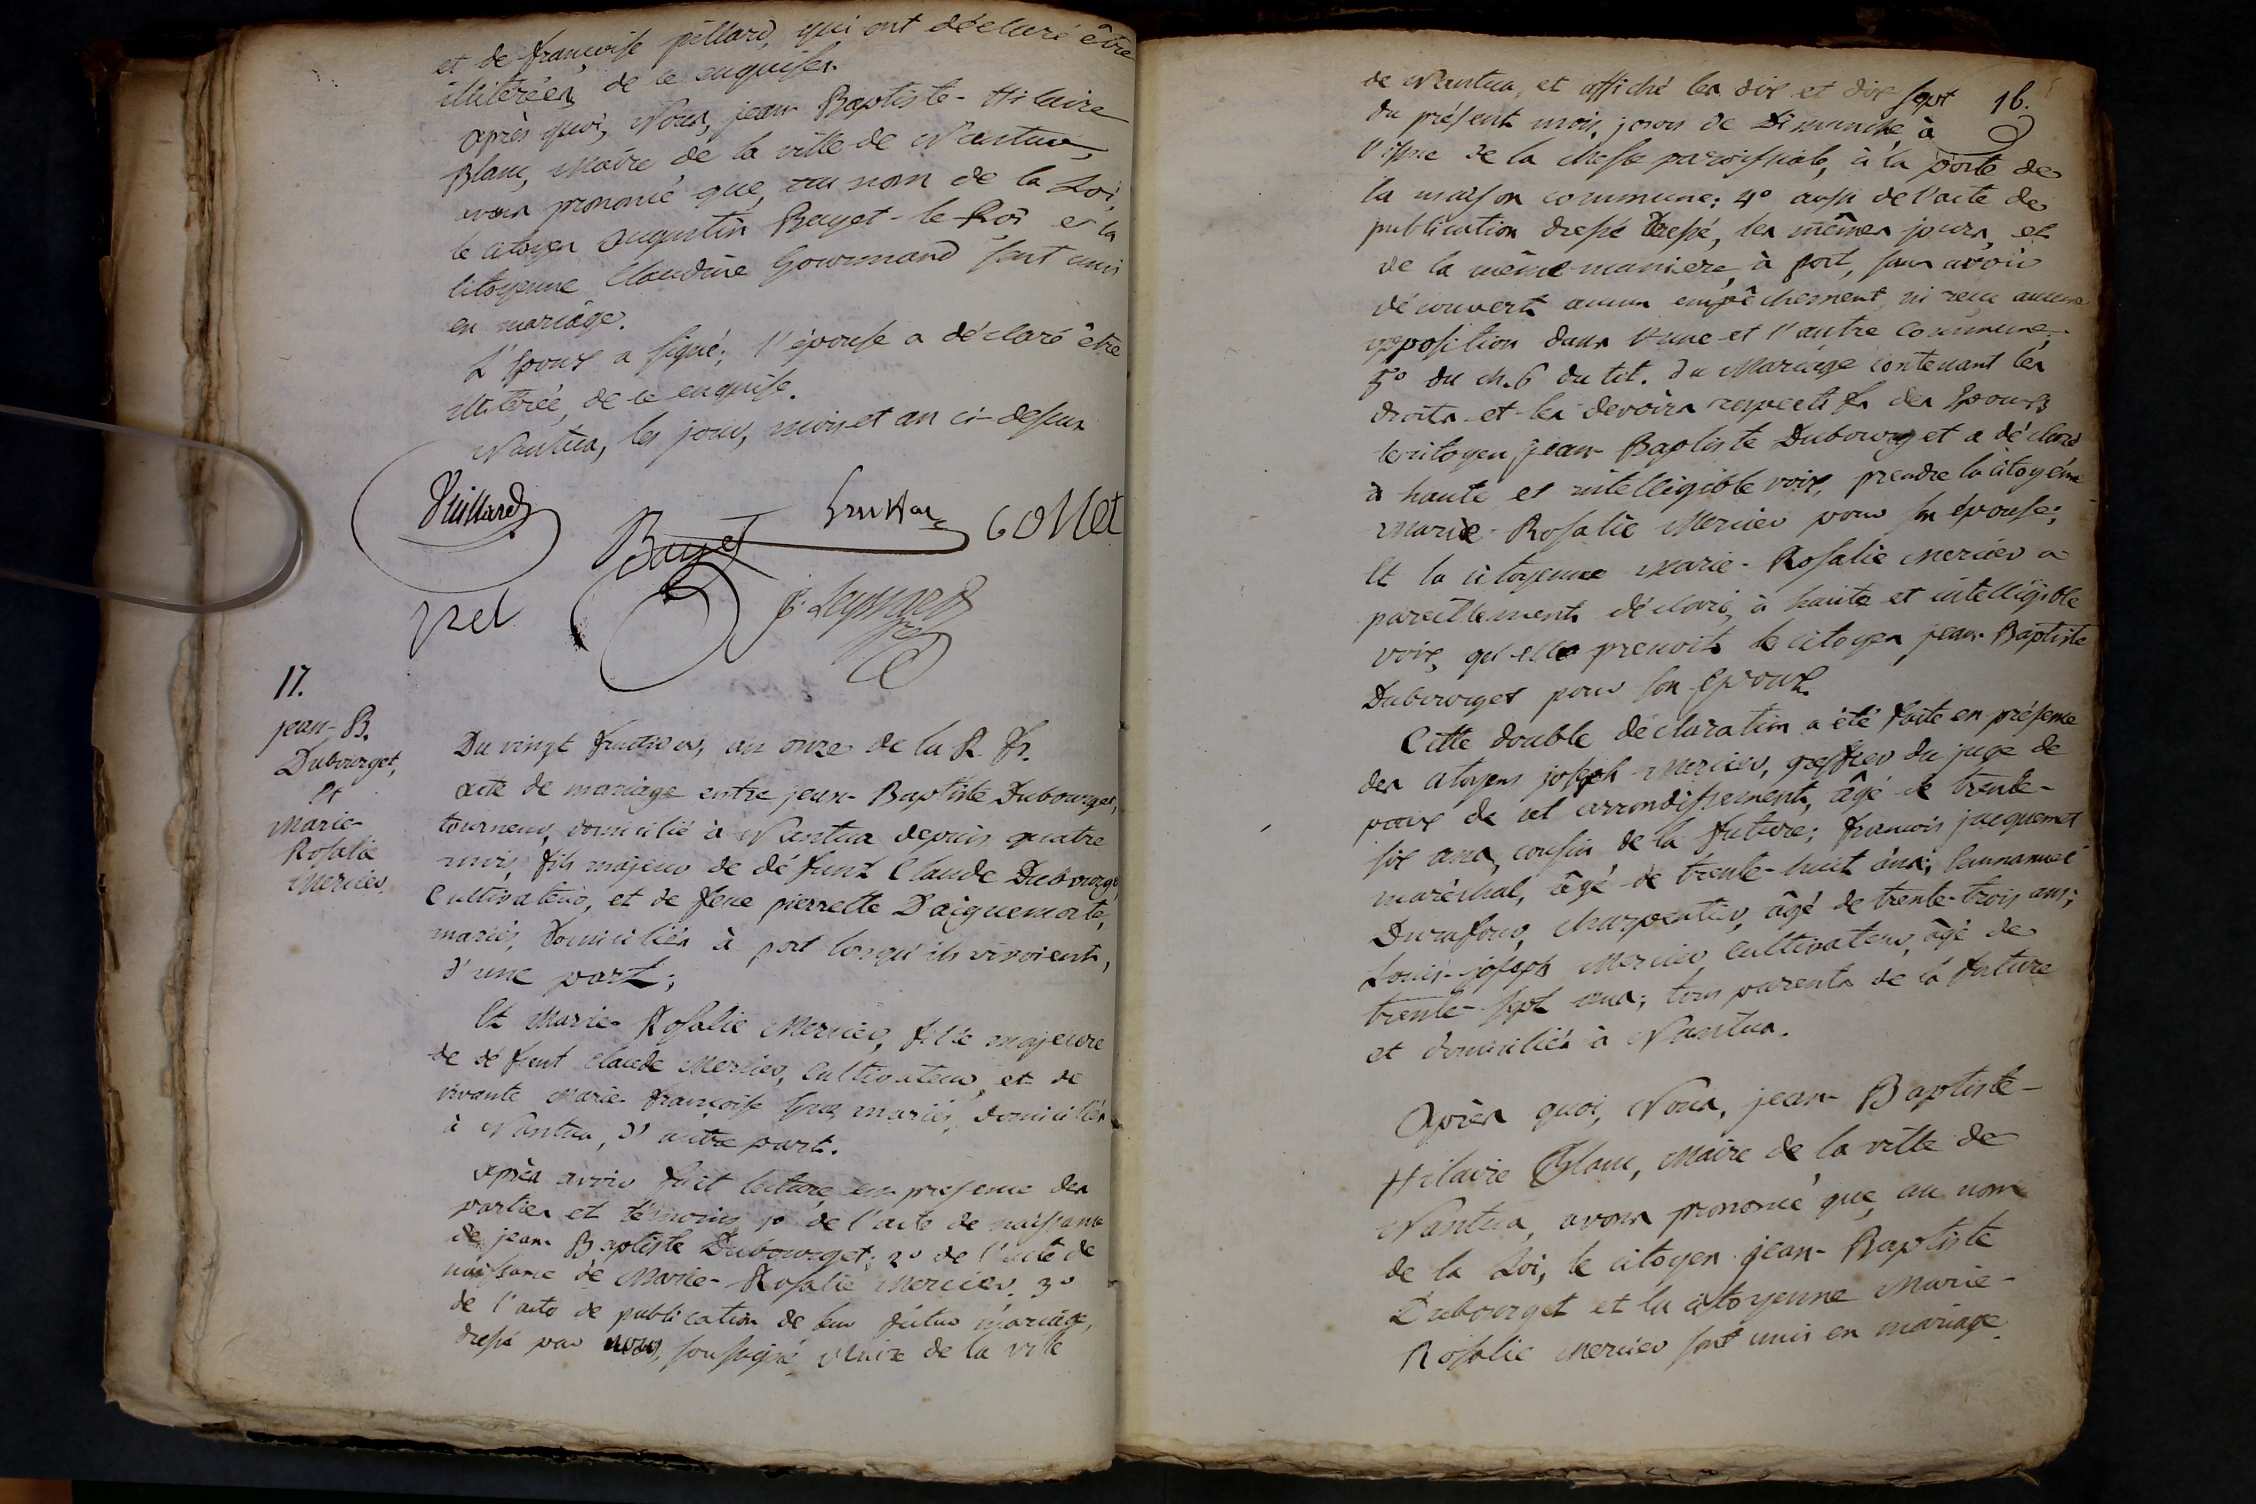 et de françoise pillard, qui ont déclaré être
illiterées, de ce enquises.
après quoi, Nous, jean Baptiste-Hilaire
Blanc, Maire de la ville de Nantua,
avons prononcé que, au nom de la Loi,
le citoyen augustin Bayet-le-Roi et la
citoyenne Claudine Gourmand sont unis
en mariage.
L'Epoux a signé; l'épouse a déclaré être
illiterée, de ce enquise.
Nantua, les jour, mois et an ci-dessus
Vuillard
Bayet
Collet
17.
jean-B.
Dubourget,
Et
Marie-
Rosalie
Mercier.
Du vingt fructidor, an onze de la R. fr.
acte de mariage entre jean-Baptiste Dubourget,
tourneur, domicilié à Nantua depuis quatre
mois, fils majeur de défunt Claude Dubourget
Cultivateur, et de feue pierrette D'aiguemorte,
mariés, domiciliés à port lorsqu'ils vivoient,
d'une part;
Et Marie-Rosalie Mercier, fille majeure
de défunt claude Mercier, Cultivateur, et de
vivante Marie-françoise mariés, domiciliés
à Nantua, d'autre part.
après avoir fait lecture en presence des
parties et témoins, 1o de l'acte de naissance
de jean Baptiste Dubourget; 2o de l'acte de
naissance de Marie-Rosalie Mercier. 3o
de l'acte de publication de leur futur mariage,
dressé par nous, soussigné Maire de la ville
16.
de Nantua, et affiché les dix et dix sept
du présent mois, jours de Dimanche à
l'issue de la Messe paroissiale, à la porte de
la maison commune; 4o aussi de l'acte de
publication dressé dressé, les mêmes jours, et
de la même maniere, à port, sans avoir
découvert aucun empêchement, ni reçu aucune
opposition dans l'une et l'autre Commune,
5o du ch. 6 du tit. du Mariage contenant les
droits et les devoirs respectifs des Epoux
le citoyen jean-Baptiste Dubourget a déclaré
à haute et intelligible voix, prendre la citoyenne
Marie-Rosalie Mercier pour son épouse;
Et la citoyenne Marie-Rosalie Mercier a
pareillement déclaré, à haute et intelligible
voix, qu'elle prenoit le citoyen jean-Baptiste
Dubourget pour son Epoux.
Cette double déclaration a été faite en présence
des citoyens joseph Mercier, greffier du juge de
paix de cet arrondissement, âgé de trente-
six ans, cousin de la future; françois jacquemet
maréchal, âgé de trente-huit ans; Emmanuel
Durafour, charpentier, âgé de trente-trois ans;
Louis-joseph Mercier cultivateur, âgé de
trente-sept ans; tous parents de la future
et domiciliés à Nantua.
Après quoi, Nous, jean-Baptiste-
Hilaire Blanc, Maire de la ville de
Nantua, avons prononcé que, au nom
de la Loi, le citoyen jean-Baptiste
Dubourget et la citoyenne Marie-
Rosalie Mercier sont unis en mariage.